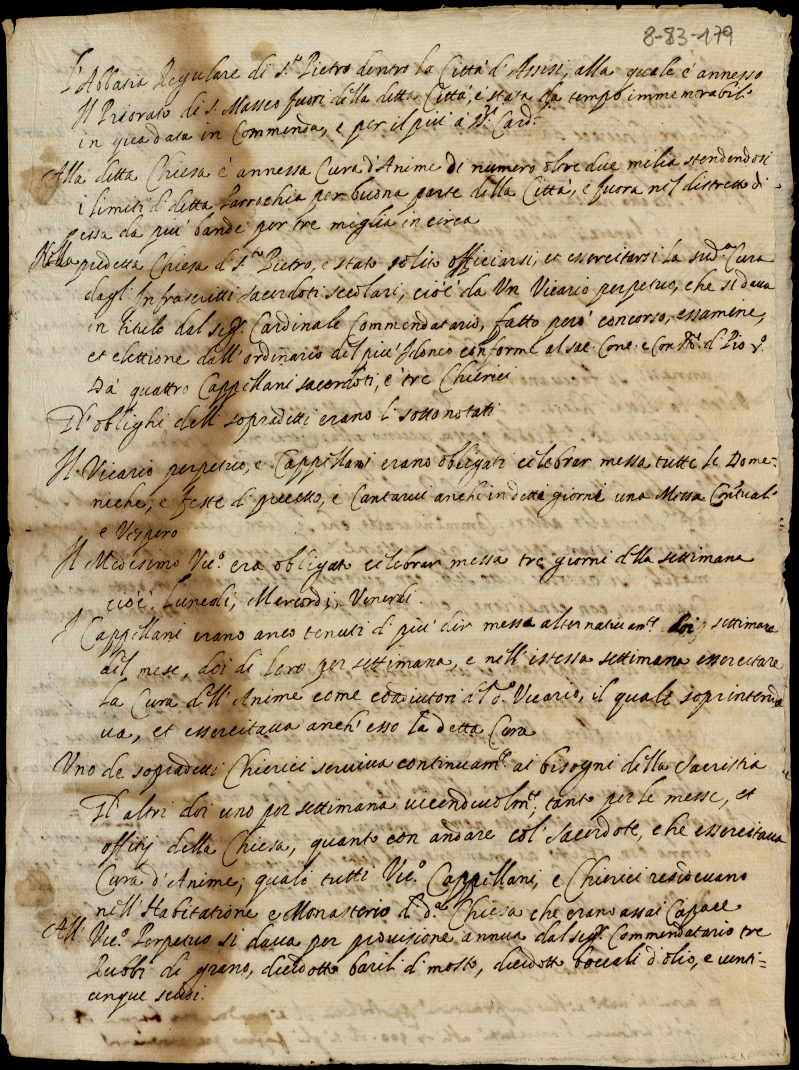 8-83-179
L'Abbatia Regulare di S.to Pietro dentro la Città d'Assisi, alla quale è annesso
Il Priorato di S. Masseo fuori della detta Città, è stata da tempo immemorabil.e
in qua data in Commenda, e per il più à Card.li
Alla detta Chiesa è annessa Cura d'Anime di numero oltre due milia stendendosi
i limiti d detta Parrochia per buona parte della Città, e fuora nel distretto di
essa da più bande per tre miglia in circa
Nella predetta Chiesa d S.to Pietro, è stato solito officiarsi, et essercitarsi la sud.a Cura
dagl'Infrascritti sacerdoti secolari, cioè da Un Vicario perpetuo, che si dava
in titulo dal sig.r Cardinale Commendatario, fatto però concorso, essamine,
et elettione dall'ordinario del più Idoneo conforme al sac. Conc. e Con.ne d. Pio V.o
Da quattro Cappellani sacerdoti, e tre Chierici
Gl'oblighi delli sopradetti erano li sottonotati
Il Vicario perpetuo, e Cappellani erano obligati celebrar messa tutte le Dome-
niche, e feste di precetto, e Cantarvi anche in detti giorni una Messa Con.tual.e
e Vespero
Il Medesimo Vic.o era obligato celebrar messa tre giorni della settimana
cioè Lunedì, Mercordì, Venerdì.
I Cappellani erano anco tenuti d più dir messa alternativam.te doi settimane
del mese, doi di loro per settimana, e nell'istessa settimana essercitare
la Cura dell'Anime come coadiutori d d.o Vicario, il quale soprintende
va, et essercitava anch'esso la detta Cura
Uno de sopradetti Chierici serviva continuam.te ai bisogni della Sacristia
Gl'altri doi uno per settimana vicendevolm.te, tanto per le messe, et
offitij della Chiesa, quanto con andare col' Sacerdote, che essercitava
Cura d'Anime; quali tutti Vic.o Cappellani, e Chierici residevano
nell'Habitatione e Monasterio d d.a Chiesa che erano assai Capace
All Vic.o Perpetuo si dava per provisione annua dal sig.r Commendatario tre
Rubbi di grano, dieidotto barili d mosto, dieidotto boccali d'olio, e vinti-
cinque scudi.